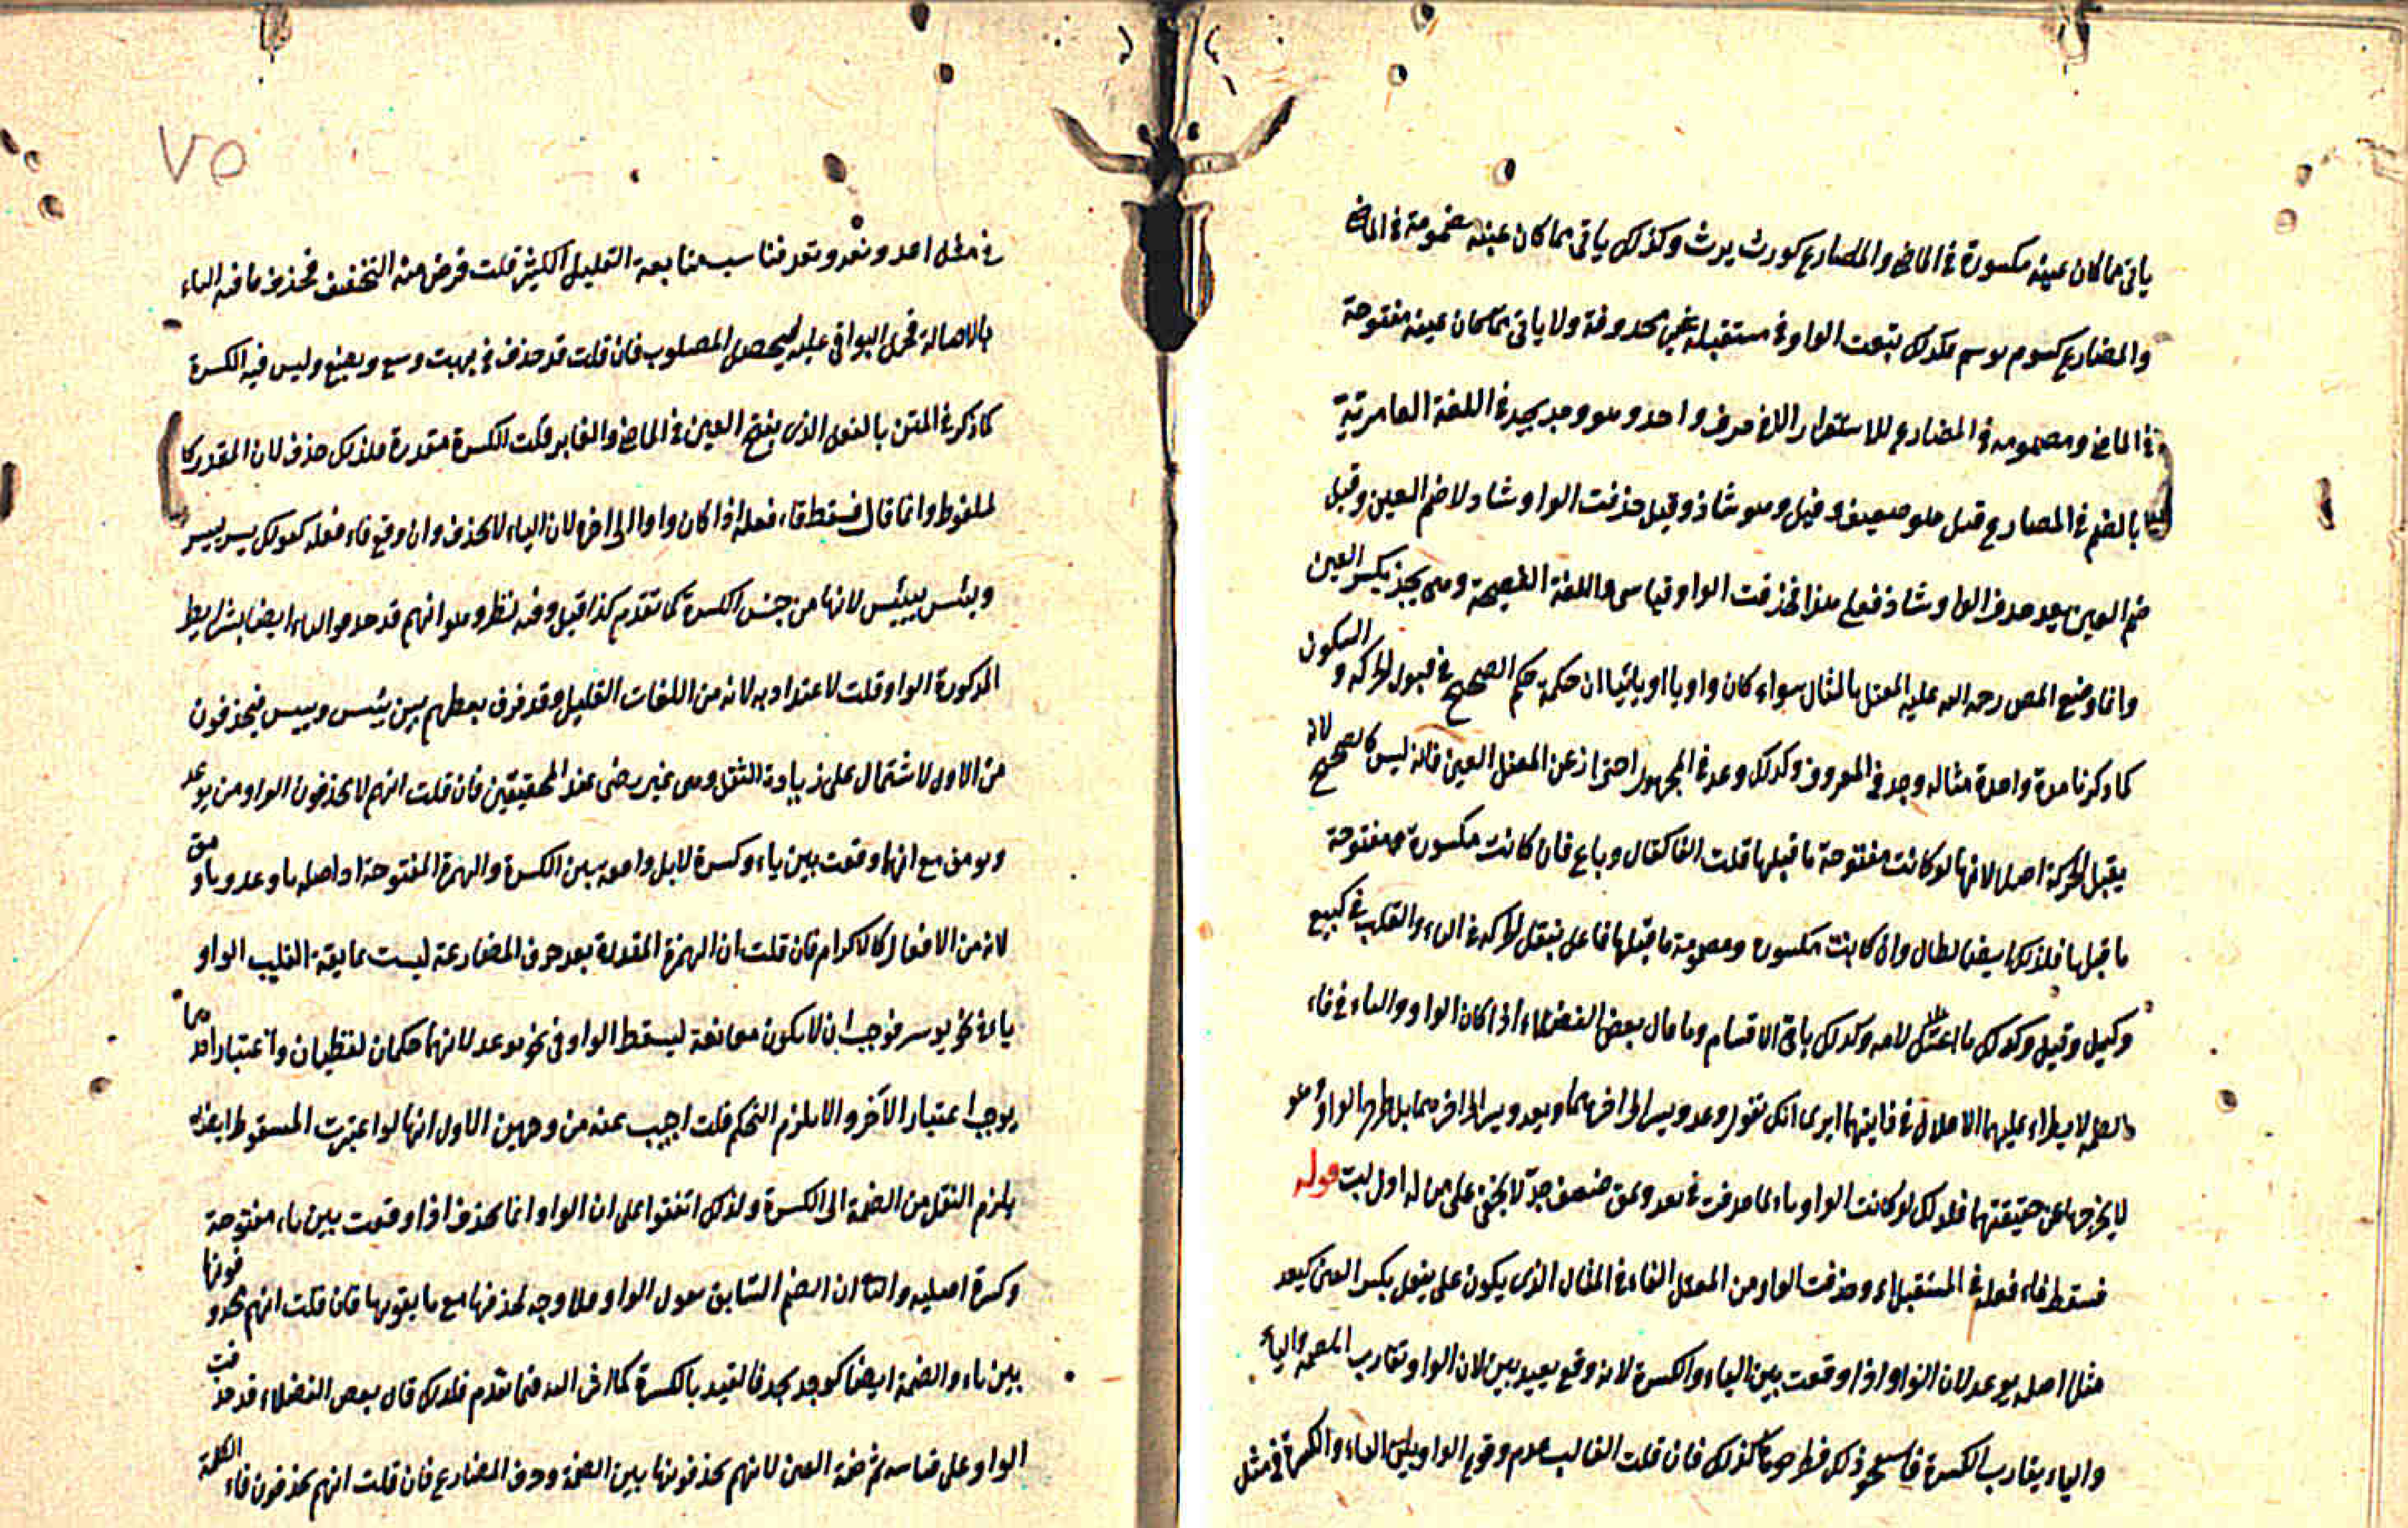 ياتى مما كان عينه مكسورة فى الماضى والمضارع كورث يرث وكذلك ياتى مما كان عينه مضمومة فى الماضى
والمضارع كوسم يوسم فكذلك يثبت الواو فى مستقبله غير محذوفة ولا ياتى مما كان عينه مفتوحة
فى الماضى ومضمومه فى المضارع للاستقراء الا فى حرف واحد وهو وجد يجد فى اللغة العامرية
بالضم فى المضارع قيل هو ضعيف وقيل وهو شاذ وقيل حذفت الواو شاذ لا ضم العين وقيل
ضم العين بعد حذف الواو شاذ فعلى هذا حذفت الواو قياسى واللغة الفصيحة وهى يجد بكسر العين
وانما وضع المص رحمه الله عليه المعتل بالمثال سواء كان واويا او يائيا ان حكمه حكم الصحيح فى قبول الحركة والسكون
كما ذكرنا مرة واحدة مثاله وجد فى المعروف وكذلك وعد فى المجهول احتراز عن المعتل العين فانه ليس كالصحيح لانه
يقبل الحركة اصلا لانها لو كانت مفتوحة ما قبلها قلبت الفا كقال وباع فان كانت مكسورة ومفتوحة
ما قبلها فلذلك ايضا لطال وان كانت مكسوره ومضمومة ما قبلها فاعل بنقل الحركة فى الياء والقلب فى كبيع
وكيل وقيل وكذلك ما اعتل لامه وكذلك باقى الاقسام وما قال بعض الفضلاء اذا كان الواو والياء فى فاء
الكلمه لا يطراء عليهما الاعلال فى فايتهما ايرى انك تقول وعد ويسر الى اخرهما ويعد وييسر الى اخرهما بل طرح الواو وهو
لا يخرجها عن حقيقتهما فلذلك لو كانت الواو ياء لما حذفت فى يعد ويمق ضعف جدّ لا يخفى على من له اول لبت قوله
فسقط فاء فعله فى المستقبل اه وحذفت الواو من المعتل الفاء فى المثال الذى يكون على يفعل بكسر العين كيعد
مثلا اصله يوعد لان الواو اذا وقعت بين الياء والكسرة لانه وقع بعيد بين لان الواو تقارب الضمه والياء
والياء يقارب الكسرة فان قلت الغالب عدم وقوع الواو بين الياء والكسرة فى مثل
فى مثل اعد ونعد وتعد فناسب متابعة القليل الكثير قلت فرض منه التخفيف فحذف ما فيه الياء
بالاصالة فحمل البواقى عليه ليحصل المطلوب فان قلت قد حذف فى يهب وسع ويضع وليس فيه الكسرة
كما ذكر فى المتن بالفعل الذى بفتح العين فى الماضى والغابر قلت الكسرة مقدرة فلذلك حذف لان المقدر كا
لملفوظ وانما قال فسقط فاء فعله اذا كان واوا الى اخره لان الياء لا يحذف وان وقع فاء فعله كقولك يسر ييسر
ويئس ييئس لانها من جنس الكسرة كما تقدم كذا قيل وفيه نظر وهو انهم قد حذفوا الياء ايضا بشرايط
المذكورة الواو قلت لا عتداد به لانه من اللغات القليل وقد فرق بعضهم بين يئس وييس فيحذفون
من الاول لاشتمال على زيادة الثقل وهى غير رضى عند المحققين فان قلت انهم لا يحذفون الواو من يوعد
ويومن مع انها وقعت بين ياء وكسرة لا بل واقعه بين الكسرة والهمزة المفتوحة اذ اصله ياوعد وياومق
لانه من الافعال كالاكرام فان قلت ان الهمزة المقدرة بعد حرف المضارعة ليست بمايقة القلب الواو
ياء فى نحو يوسر فوجب ان لا يكون ممانعة ليسقط الواو فى نحو يوعد لانهما حكمان لفظيان واعتبار احدهما
يوجب اعتبار الآخر والا يلزم التحكم قلت اجيب عنه من وجهين الاول انها لو اعتبرت المسقوط
يلزم النقل من الضمة الى الكسرة ولذلك اتفقوا على ان الواو انما يحذف اذا وقعت بين ياء مفتوحة
وكسرة اصليه والثا ان الضم السابق معول الواو فلا وجه لحذفها مع ما يقويها فان قلت انهم يحذفونها
بين ياء والضمة ايضا كوجد يجد فالقيد بالكسرة كما اش اليه فيما تقدم فلذلك قال بعض الفضلاء قد حذفت
الواو على قياسه ثم ضمة العين لانهم يحذفونها بين الضمة وحرف المضارع فان قلت انهم يحذفون فاء الكلمة